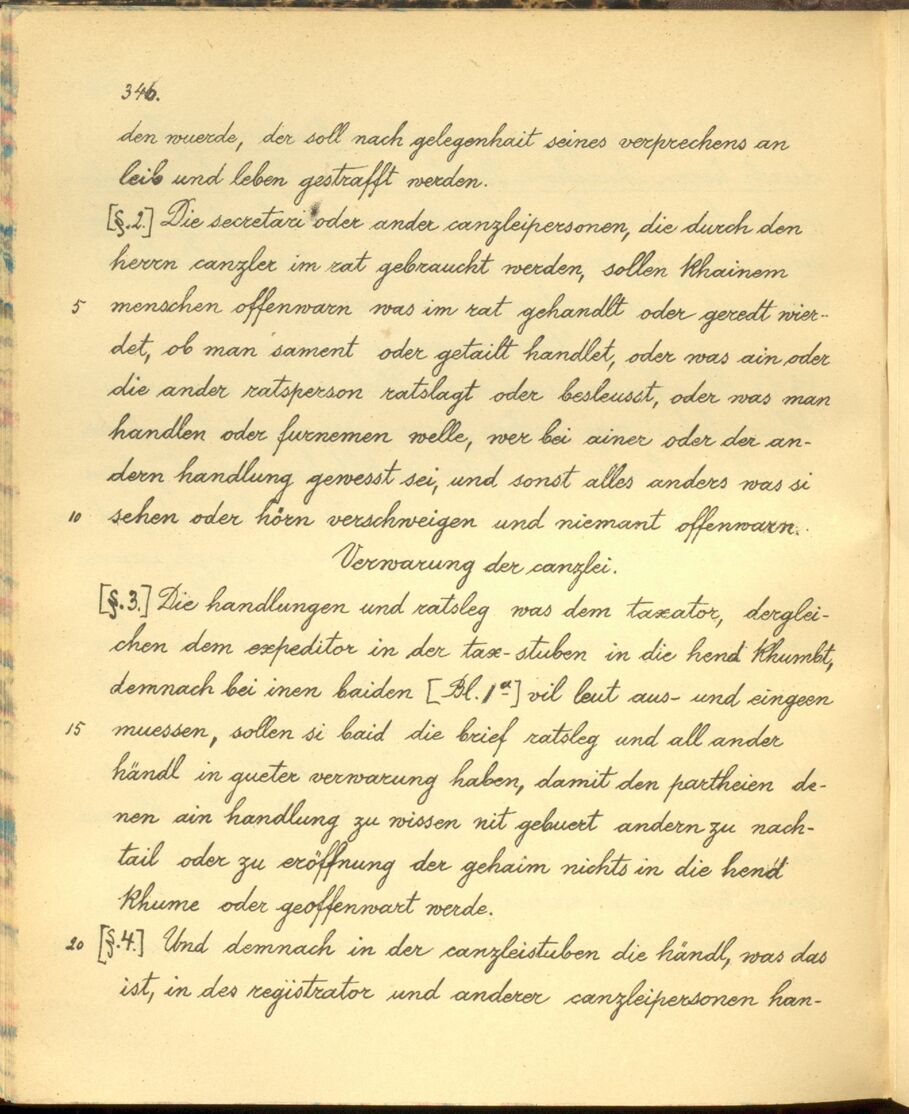 346.
den wuerde, der soll nach gelegenhait seines verprechens an
leib und leben gestrafft werden.
[§.2.] Die secretari oder ander canzleipersonen, die durch den
herrn canzler im rat gebraucht werden, sollen khainem
5 menschen offenwarn was im rat gehandlt oder geredt wier-
det, ob man sament oder getailt handlet, oder was ain oder
die ander ratsperson ratslagt oder besleusst, oder was man
handlen oder furnemen welle, wer bei ainer oder der an-
dern handlung gewesst sei, und sonst alles anders was si
10 sehen oder hörn verschweigen und niemant offenwarn.
Verwarung der canzlei.
[§.3.] Die handlungen und ratsleg was dem taxator, derglei-
chen dem expeditor in der tax-stuben in die hend khumbt,
demnach bei inen baiden [Bl. 1ª] vil leut aus- und eingeen
15 muessen, sollen si baid die brief ratsleg und all ander
händl in gueter verwarung haben, damit den partheien de-
nen ain handlung zu wissen nit gebuert andern zu nach-
tail oder zu eröffnung der gehaim nichts in die hend
khume oder geoffenwart werde.
20 [§.4.] Und demnach in der canzleistuben die händl, was das
ist, in des registrator und anderer canzleipersonen han-